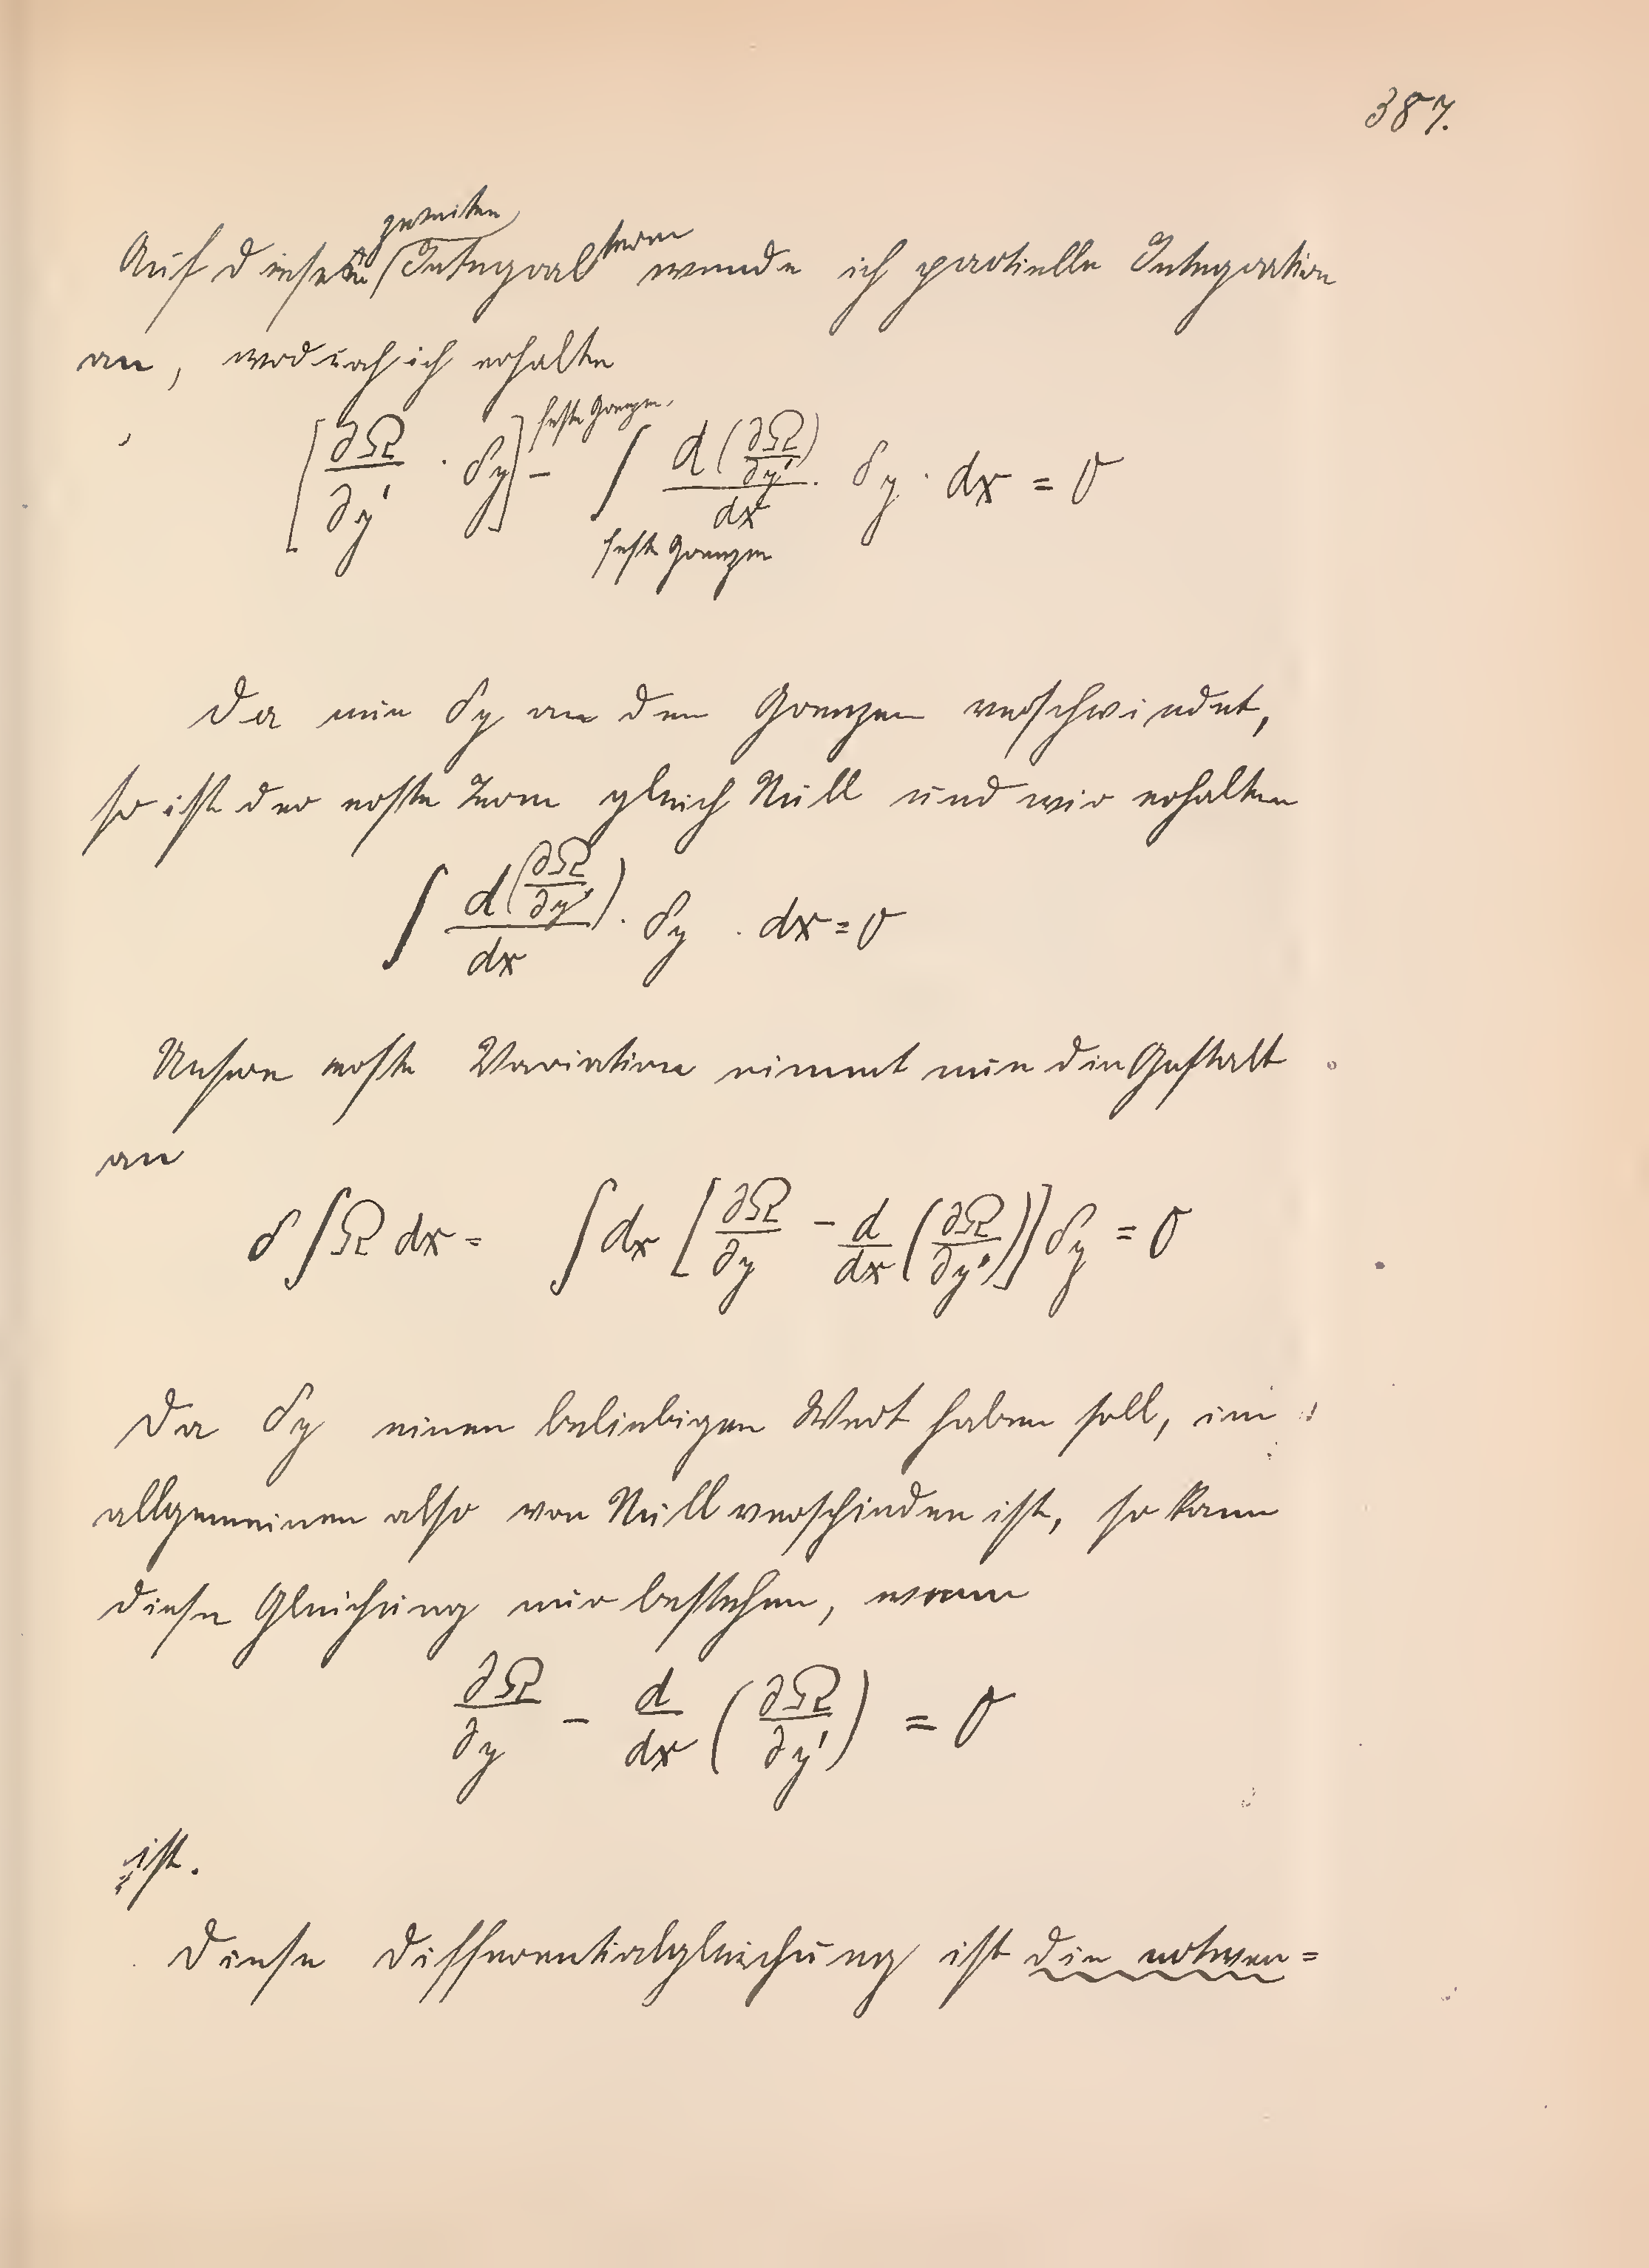 387.
Auf diesen zweiten Integralterm wende ich partielle Integration
an, wodurch ich erhalte
[∂Ω/∂y' · δy]^{feste Grenzen.} − ∫_{feste Grenzen} d(∂Ω/∂y')/dx · δy · dx = 0
Da nun δy an den Grenzen verschwindet,
so ist der erste Term gleich Null und wir erhalten
∫ d(∂Ω/∂y')/dx · δy · dx = 0
Unsere erste Variation nimmt nun die Gestalt
an
δ∫Ω dx = ∫dx [∂Ω/∂y − d/dx (∂Ω/∂y')] δy = 0
Da δy einen beliebigen Wert haben soll, im
allgemeinen also von Null verschieden ist, so kann
diese Gleichung nur bestehen, wenn
∂Ω/∂y − d/dx (∂Ω/∂y') = 0
ist.
Diese Differentialgleichung ist die notwen=